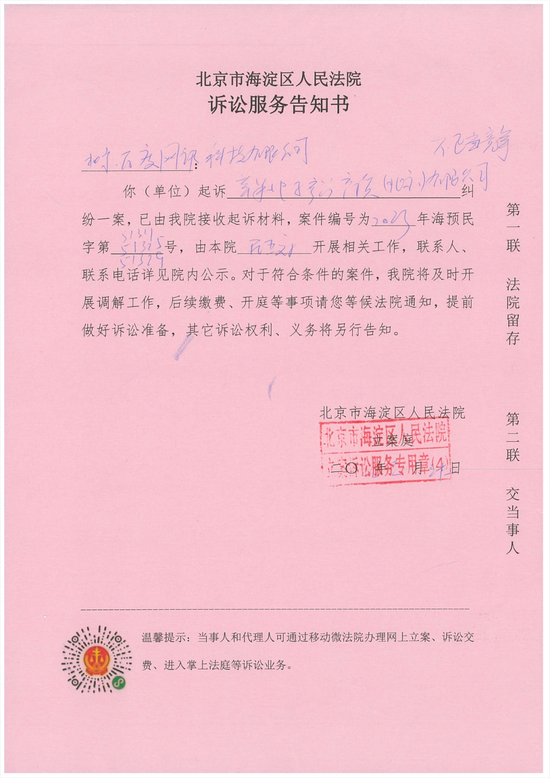 北京市海淀区人民法院
诉讼服务告知书
百度网讯科技有限公司
你（单位）起诉
纠
纷一案，已由我院接收起诉材料，案件编号为2023年海预民
字第
号，由本院
开展相关工作，联系人、
联系电话详见院内公示。对于符合条件的案件，我院将及时开
展调解工作，后续缴费、开庭等事项请您等候法院通知，提前
做好诉讼准备，其它诉讼权利、义务将另行告知。
北京市海淀区人民法院
立案庭
北京市海淀区人民法院
诉讼服务专用章(4)
年
月
日
第一联 法院留存
第二联 交当事人
温馨提示：当事人和代理人可通过移动微法院办理网上立案、诉讼交
费、进入掌上法庭等诉讼业务。